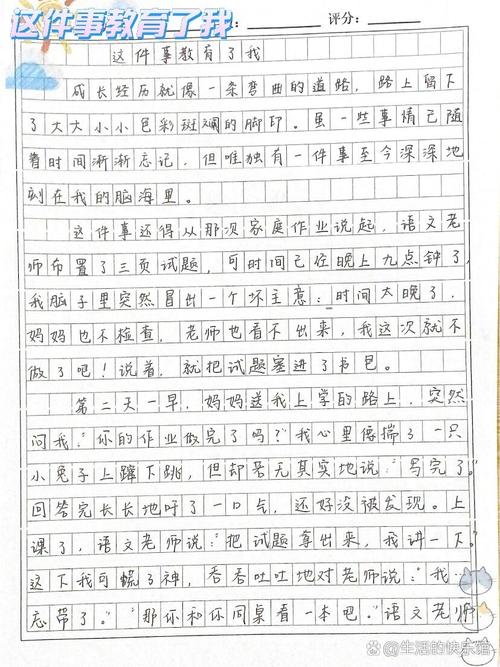 这件事教育了我
评分：
这件事教育了我
成长经历就像一条弯曲的道路，路上留下
了大大小小色彩斑斓的脚印。虽一些事情已随
着时间渐渐忘记，但唯独有一件事至今深深地
刻在我的脑海里。
这件事还得从那次家庭作业说起，语文老
师布置了三页试题，可时间已住晚上九点钟了，
我脑子里突然冒出一个坏主意：时间太晚了，
妈妈也不检查，老师也看不出来，我这次就不
做了吧！说着，就把试题塞进了书包。
第二天一早，妈妈送我上学的路上，突然
问我：“你的作业做完了吗？”我心里像揣了一只
小兔子上蹿下跳，但却若无其实地说：“写完了。”
回答完长长地吁了一口气，还好没被发现。上
课了，语文老师说：“把试题拿出来，我讲一下。”
这下我可慌了神，吞吞吐吐地对老师说：“我…
忘带了。”“那你和你同桌看一本吧。”语文老师
@生活的快乐猫